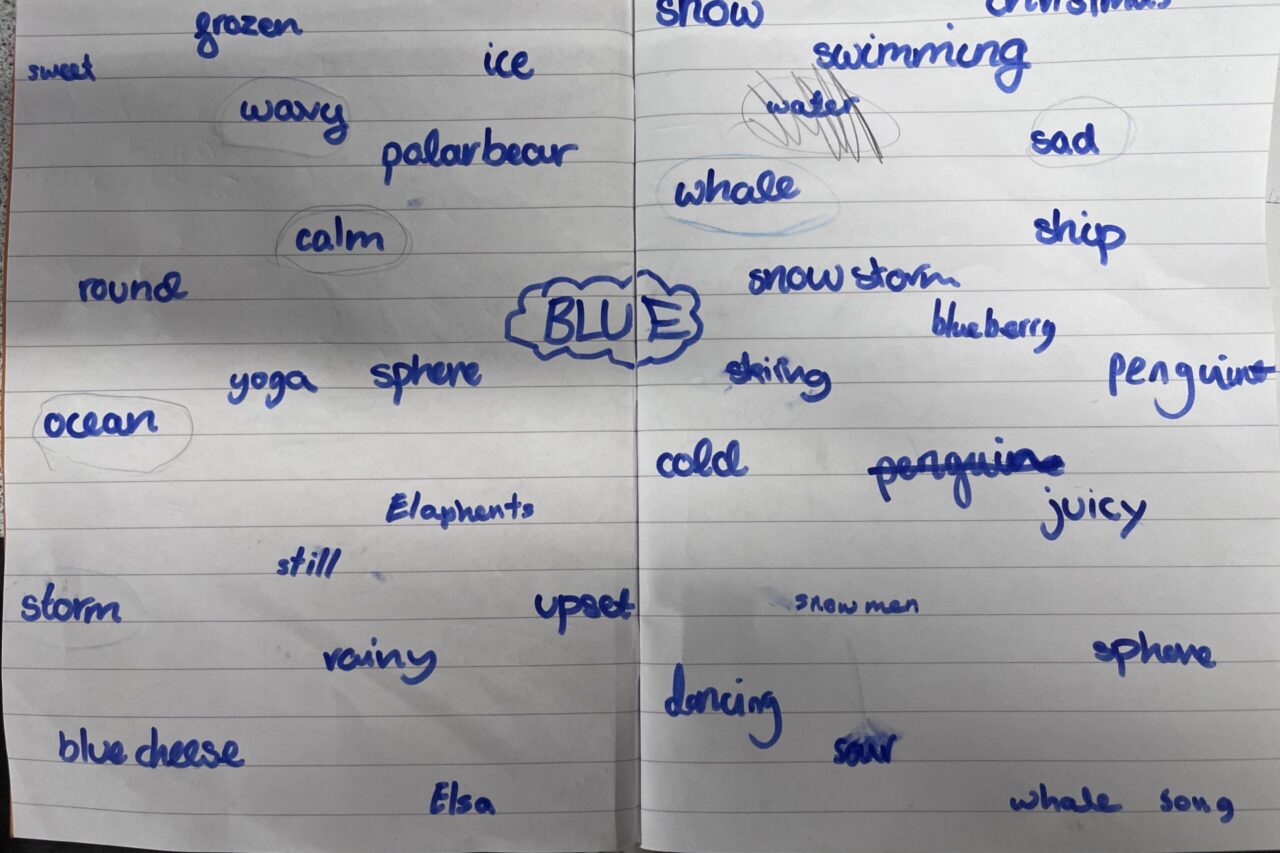 frozen
sweet
ice
wavy
polar bear
calm
round
yoga
sphere
ocean
Elaphents
still
storm
upset
rainy
blue cheese
Elsa
BLUE
snow
christmas
swimming
water
sad
whale
ship
snow storm
blueberry
skiing
penguin
cold
penguin
juicy
snow men
sphere
dancing
sour
whale song